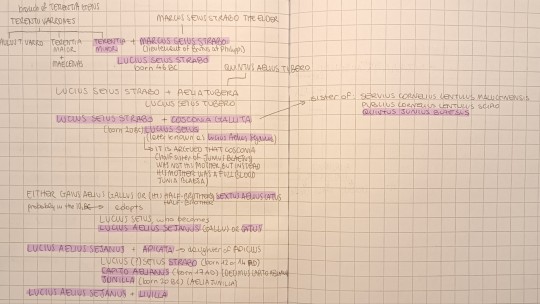 branch of TERENTIA GENS
TERENTII VARRONES
MARCUS SEIUS STRABO THE ELDER
VARRO TERENTIA MAIOR TERENTIA MINOR + MARCUS SEIUS STRABO
+ MAECENAS
(lieutenant of Brutus at Philippi)
LUCIUS SEIUS STRABO
born 46 BC
QUINTUS AELIUS TUBERO
LUCIUS SEIUS STRABO + AELIA TUBERA
LUCIUS SEIUS TUBERO
sister of SERVIUS CORNELIUS LENTULUS MALUGINENSIS
PUBLIUS CORNELIUS LENTULUS SCIPIO
QUINTUS JUNIUS BLAESUS
LUCIUS SEIUS STRABO + COSCONIA GALLITA
(born 20 BC) LUCIUS SEIUS
(later known as Lucius Aelius Sejanus)
IT IS ARGUED THAT COSCONIA
(HALF-SISTER OF JUNIUS BLAESUS)
WAS NOT HIS MOTHER BUT INSTEAD
HIS MOTHER WAS A FULL BLOOD
JUNIA BLAESA)
EITHER GAIUS AELIUS GALLUS OR (HIS) HALF-BROTHER SEXTUS AELIUS CATUS
HALF-BROTHER
probably in the BC adopts
LUCIUS SEIUS, who becomes
LUCIUS AELIUS SEJANUS (GALLUS) or CATUS
LUCIUS AELIUS SEJANUS + APICATA → daughter of APICIUS
LUCIUS (?) SEIUS STRABO (born 12 or 14 AD)
CAPITO AELIANUS (born 17 AD) (DECIMUS CAPITO AELIANUS)
JUNILLA (born 20 BC) (AELIA JUNILLA)
LUCIUS AELIUS SEJANUS + LIVILLA